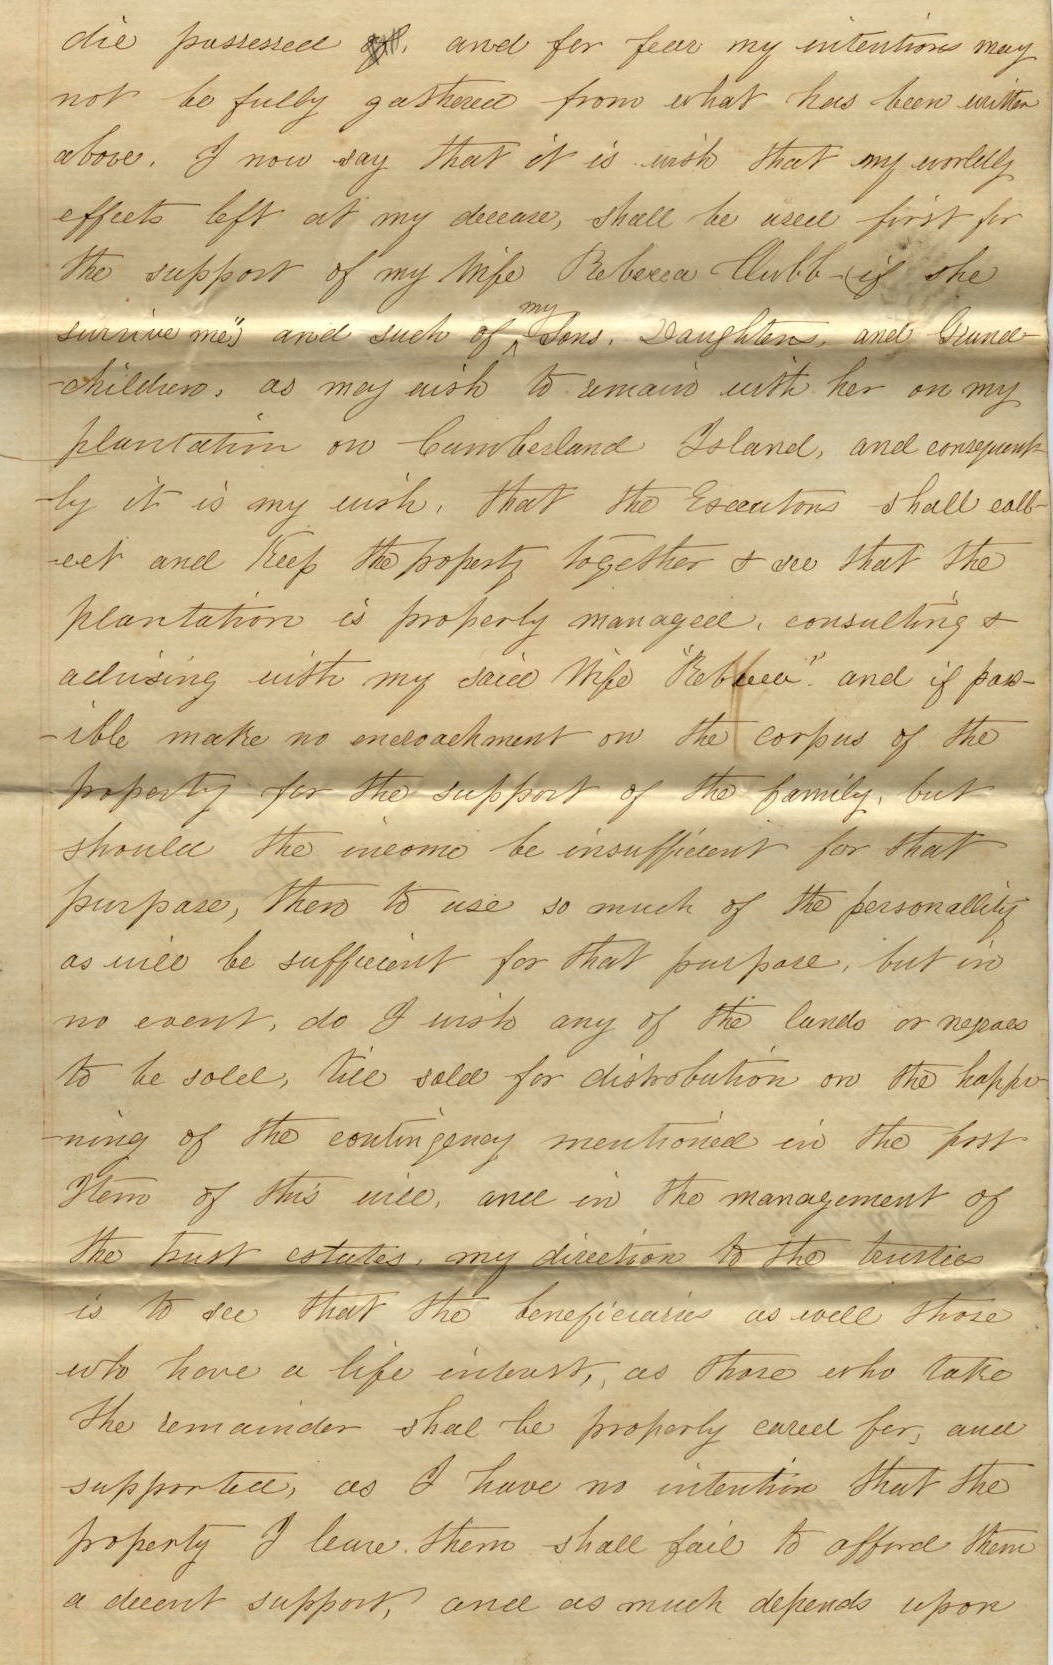 die possessed of. and for fear my intentions may
not be fully gathered from what has been written
above. I now say that it is wish that my worldly
effects left at my decease, shall be used first for
the support of my Wife Rebecca Clubb - (if she
survive me") and such of my Sons, Daughters, and Grand-
-children, as may wish to remain with her on my
plantation on Cumberland Island, and consequent-
-ly it is my wish, that the Executors shall coll-
-ect and Keep the property together & see that the
plantation is properly managed, consulting &
advising with my said Wife "Rebecca". and if poss-
-ible make no encroachment on the corpus of the
property for the support of the family, but
should the income be insufficient for that
purpose, then to use so much of the personallity
as will be sufficient for that purpose, but in
no event, do I wish any of the lands or negroes
to be sold, till sold for distrobution on the happe-
-ning of the contingency mentioned in the first
Item of this will, and in the management of
the trust estates, my direction to the trusties
is to see that the beneficiaries as well those
who have a life interest, as those who take
the remainder shal be properly cared for, and
supported, as I have no intention that the
property I leave them shall fail to afford them
a decent support, and as much depends upon